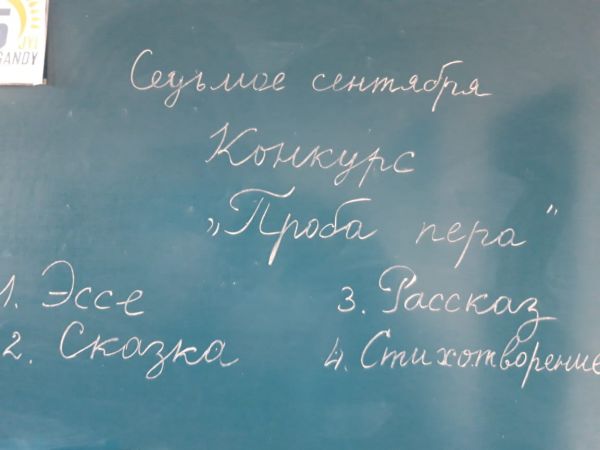 5
JYL
GANDY
Седьмое сентября
Конкурс
„Проба пера"
1. Эссе
2. Сказка
3. Рассказ
4. Стихотворение